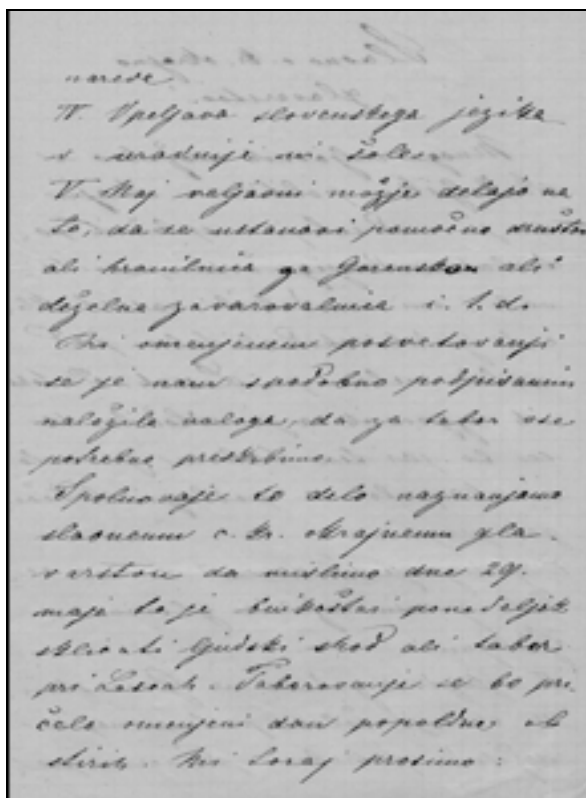 narede
IV. Vpeljava slovenskega jezika
v uradnije in šole.
V. Naj veljavni možje delajo na
to, da se ustanovi pomočno društvo
ali hranilnica za Gorensko ali
deželna zavarovalnica i. t. d.
Pri omenjenem posvetovanji
se je nam spodobno podpisanim
naložila naloga, da za tabor vse
potrebno preskrbimo.
Spolnovaje to delo naznanjamo
slavnemu c. kr. okrajnemu gla-
varstvu da mislimo dne 29.
maja to je binkoštni pondeljek
sklicati ljudski shod ali tabor
pri Lescah. Taborovanje se bo pri-
čelo omenjeni dan popoldne ob
štirih. Mi toraj prosimo: